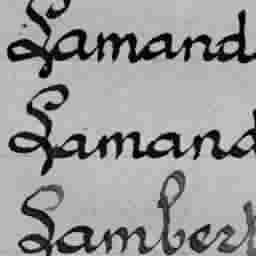 Lamand
Lamand
Lamber